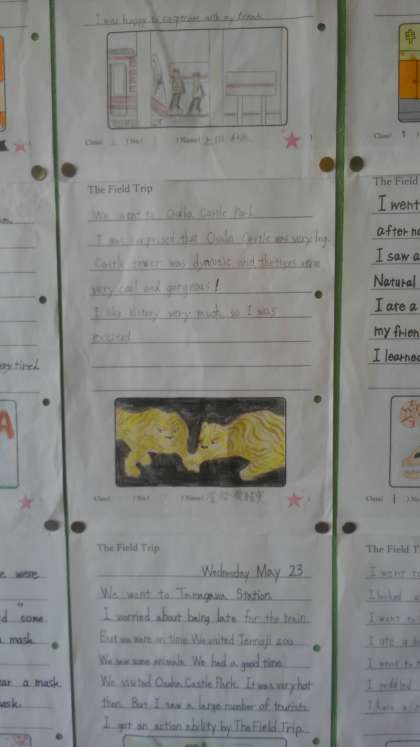 I was happy to cooperate with my friends
Class( ) No.( ) Name( )
The Field Trip
We went to Osaka Castle Park
I was surprised that Osaka Castle was very big.
Castle tower was dynamic and the tigers were
very cool and gorgeous!
I like history very much so I was
excited
Class( ) No.( ) Name( )
The Field Trip
Wednesday May 23
We went to Tamagawa Station.
I worried about being late for the train.
But we were on time. We visited Tennoji zoo.
We saw some animals. We had a good time.
We visited Osaka Castle Park. It was very hot
then. But I saw a large number of tourists.
I got an action ability by The Field Trip.
The Field Trip
I went
I saw a
Natural
I ate a
my frien
I learned
Class( 1
The Field T
I went to
I went to
I ate a
I went to
e were
some
a mask
ear a mask
ask.